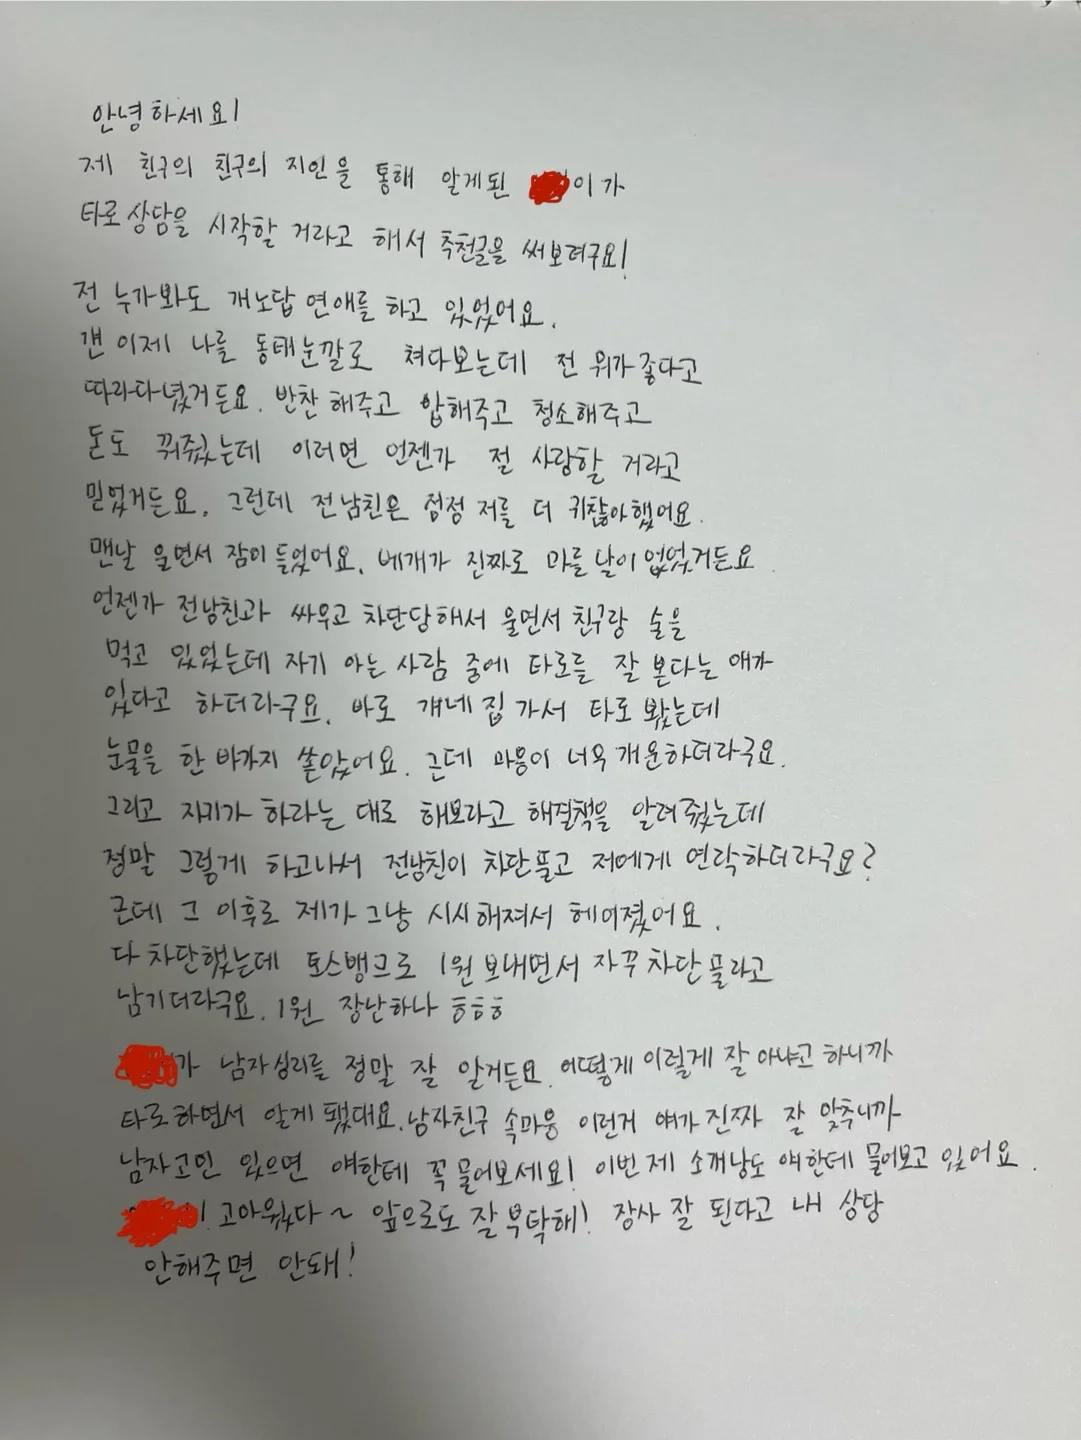 안녕하세요!
제 친구의 친구의 지인을 통해 알게된 이가
타로상담을 시작할 거라고 해서 추천글을 써보려구요!
전 누가봐도 개노답 연애를 하고 있었어요.
걘 이제 나를 동태눈깔로 쳐다보는데 전 뭐가좋다고
따라다녔거든요. 반찬 해주고 밥해주고 청소해주고
돈도 꿔줬는데 이러면 언젠가 절 사랑할 거라고
믿었거든요. 그런데 전남친은 점점 저를 더 귀찮아했어요.
맨날 울면서 잠이 들었어요. 베개가 진짜로 마를 날이 없었거든요
언젠가 전남친과 싸우고 차단당해서 울면서 친구랑 술을
먹고 있었는데 자기 아는 사람 중에 타로를 잘 본다는 애가
있다고 하더라구요. 바로 걔네 집 가서 타로 봤는데
눈물을 한 바가지 쏟았어요. 근데 마음이 너무 개운하더라구요.
그리고 자기가 하라는 대로 해보라고 해결책을 알려줬는데
정말 그렇게 하고나서 전남친이 차단풀고 저에게 연락하더라구요?
근데 그 이후로 제가 그냥 시시해져서 헤어졌어요.
다 차단했는데 토스뱅크로 1원 보내면서 자꾸 차단풀라고
남기더라구요. 1원 장난하나 ㅎㅎㅎ
가 남자심리를 정말 잘 알거든요. 어떻게 이렇게 잘 아냐고 하니까
타로하면서 알게 됐대요. 남자친구 속마음 이런거 얘가 진짜 잘 맞추니까
남자고민 있으면 얘한테 꼭 물어보세요! 이번 제 소개남도 얘한테 물어보고 있어요.
! 고마웠다~ 앞으로도 잘 부탁해! 장사 잘 된다고 내 상담
안해주면 안돼!